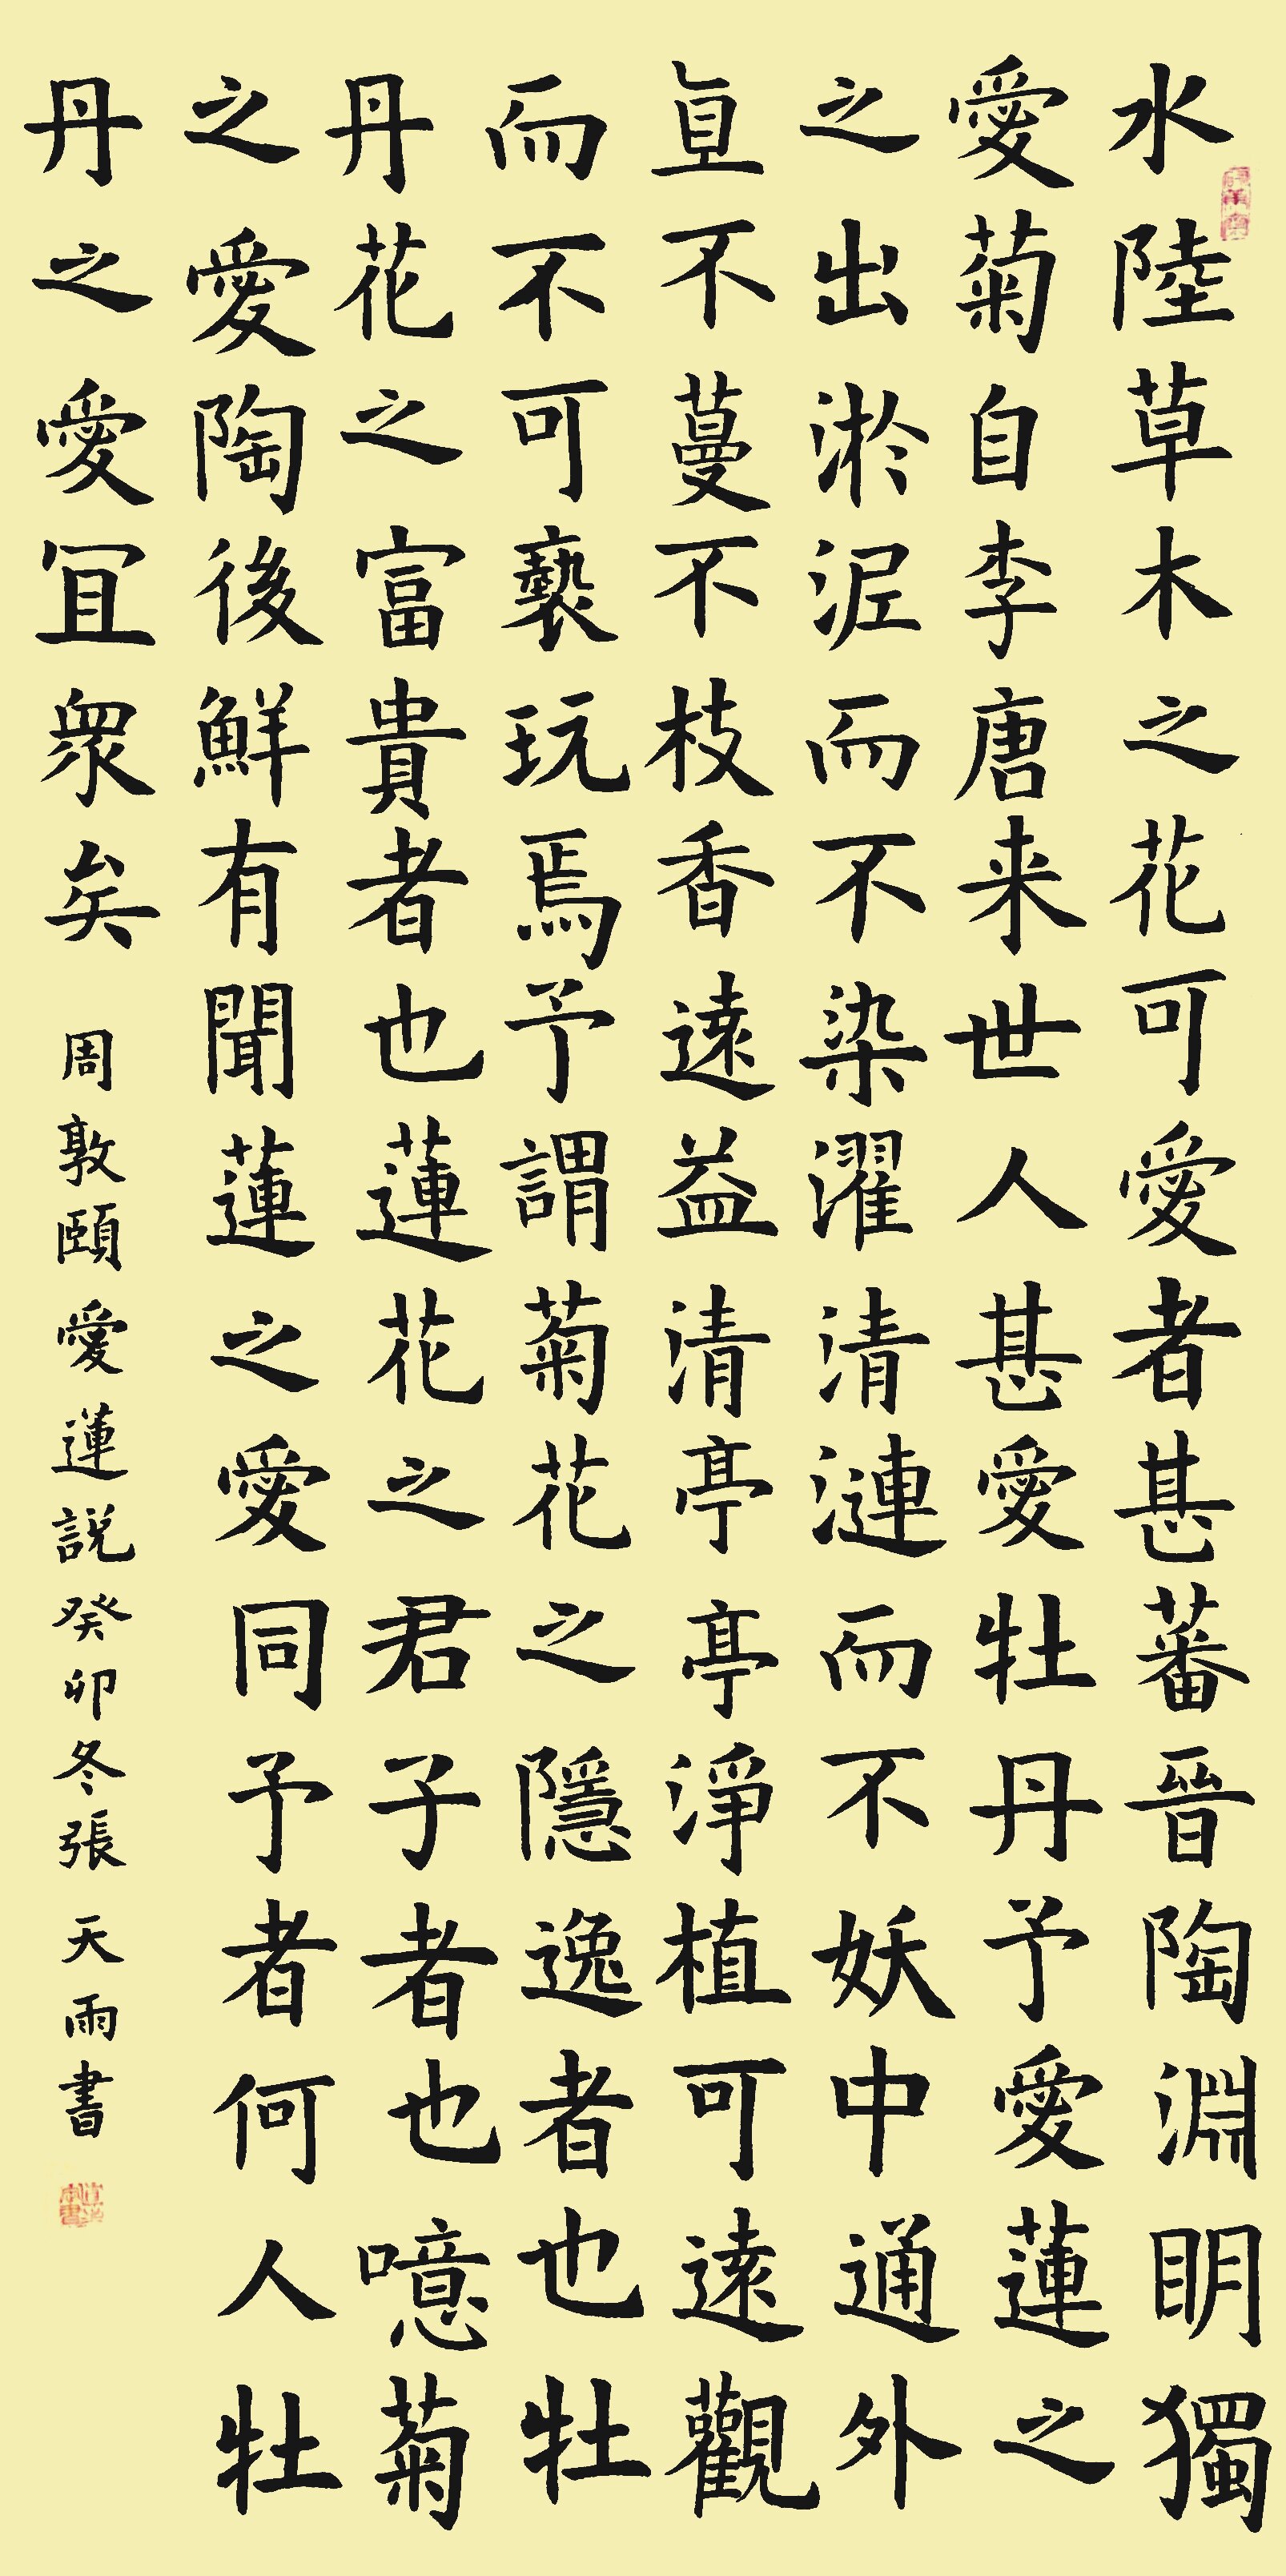 水陸草木之花可愛者甚蕃晉陶淵明獨
愛菊自李唐来世人甚愛牡丹予愛蓮之
之出淤泥而不染濯清漣而不妖中通外
直不蔓不枝香遠益清亭亭淨植可遠觀
而不可褻玩焉予謂菊花之隱逸者也牡
丹花之富貴者也蓮花之君子者也噫菊
之愛陶後鮮有聞蓮之愛同予者何人牡
丹之愛宜衆矣 周敦頤愛蓮説癸卯冬張天雨書